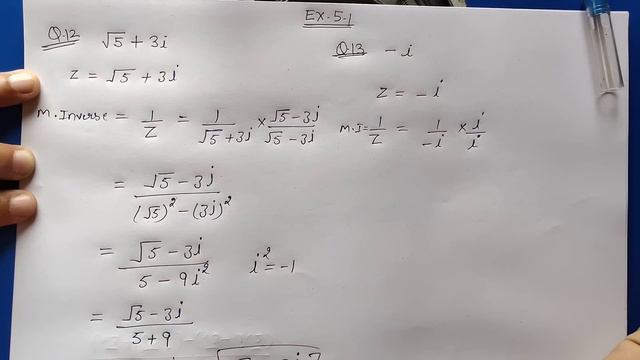 EX-5.1
Q.12 √5 + 3i
z = √5 + 3i
M.Inverse = 1/z = 1/(√5 + 3i) × (√5 - 3i)/(√5 - 3i)
= (√5 - 3i)/((√5)² - (3i)²)
= (√5 - 3i)/(5 - 9i²) i² = -1
= (√5 - 3i)/(5 + 9)
Q.13 - i
z = - i
M.I = 1/z = 1/-i × i/i